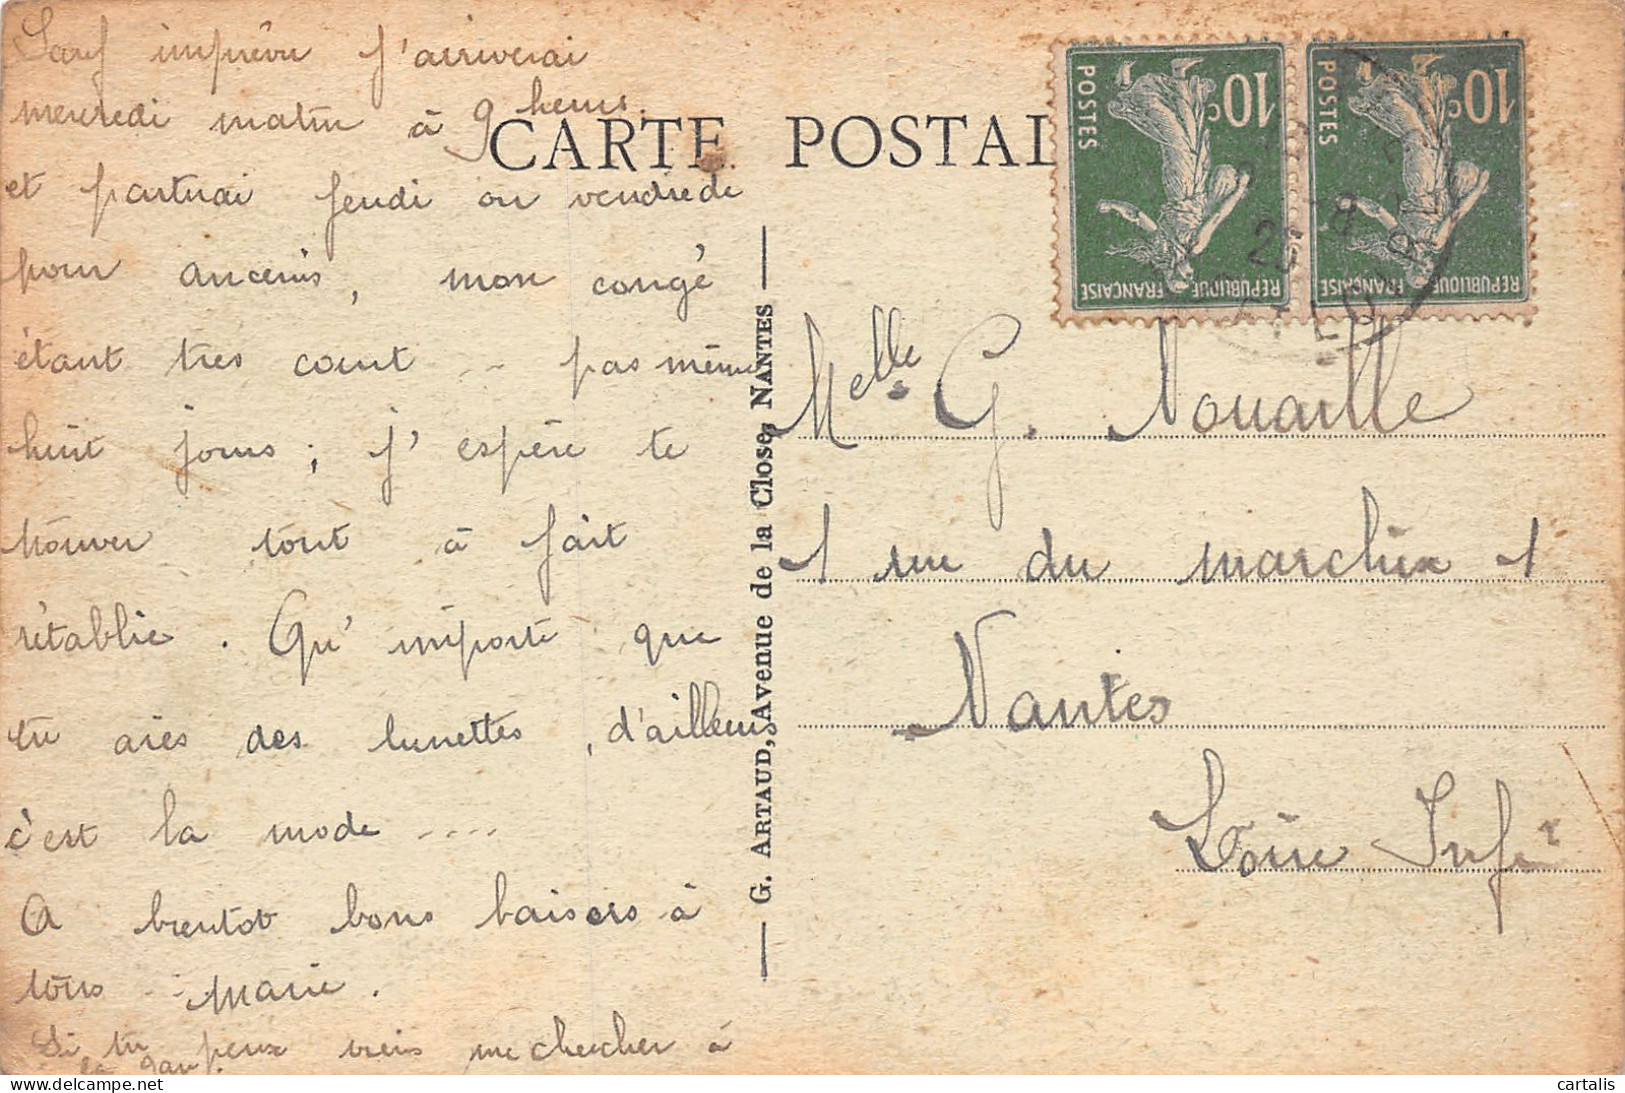 Sauf imprévu j'arriverai
mercredi matin à 9 heures.
et partirai jeudi ou vendredi
pour ancenis, mon congé
étant très court .. pas même
huit jours ; j'espère te
trouver tout à fait
rétablie. Qu'importe que
tu aies des lunettes, d'ailleurs
c'est la mode ....
A bientôt bons baisers à
tous - Marie.
Si tu peux viens me chercher à
la gare.
CARTE POSTAL
G. ARTAUD, Avenue de la Close, NANTES
POSTES
10c
RÉPUBLIQUE FRANÇAISE
POSTES
10c
RÉPUBLIQUE FRANÇAISE
Melle G. Nouaille
1 rue du marchix 1
Nantes
Loire Infre
cartalis